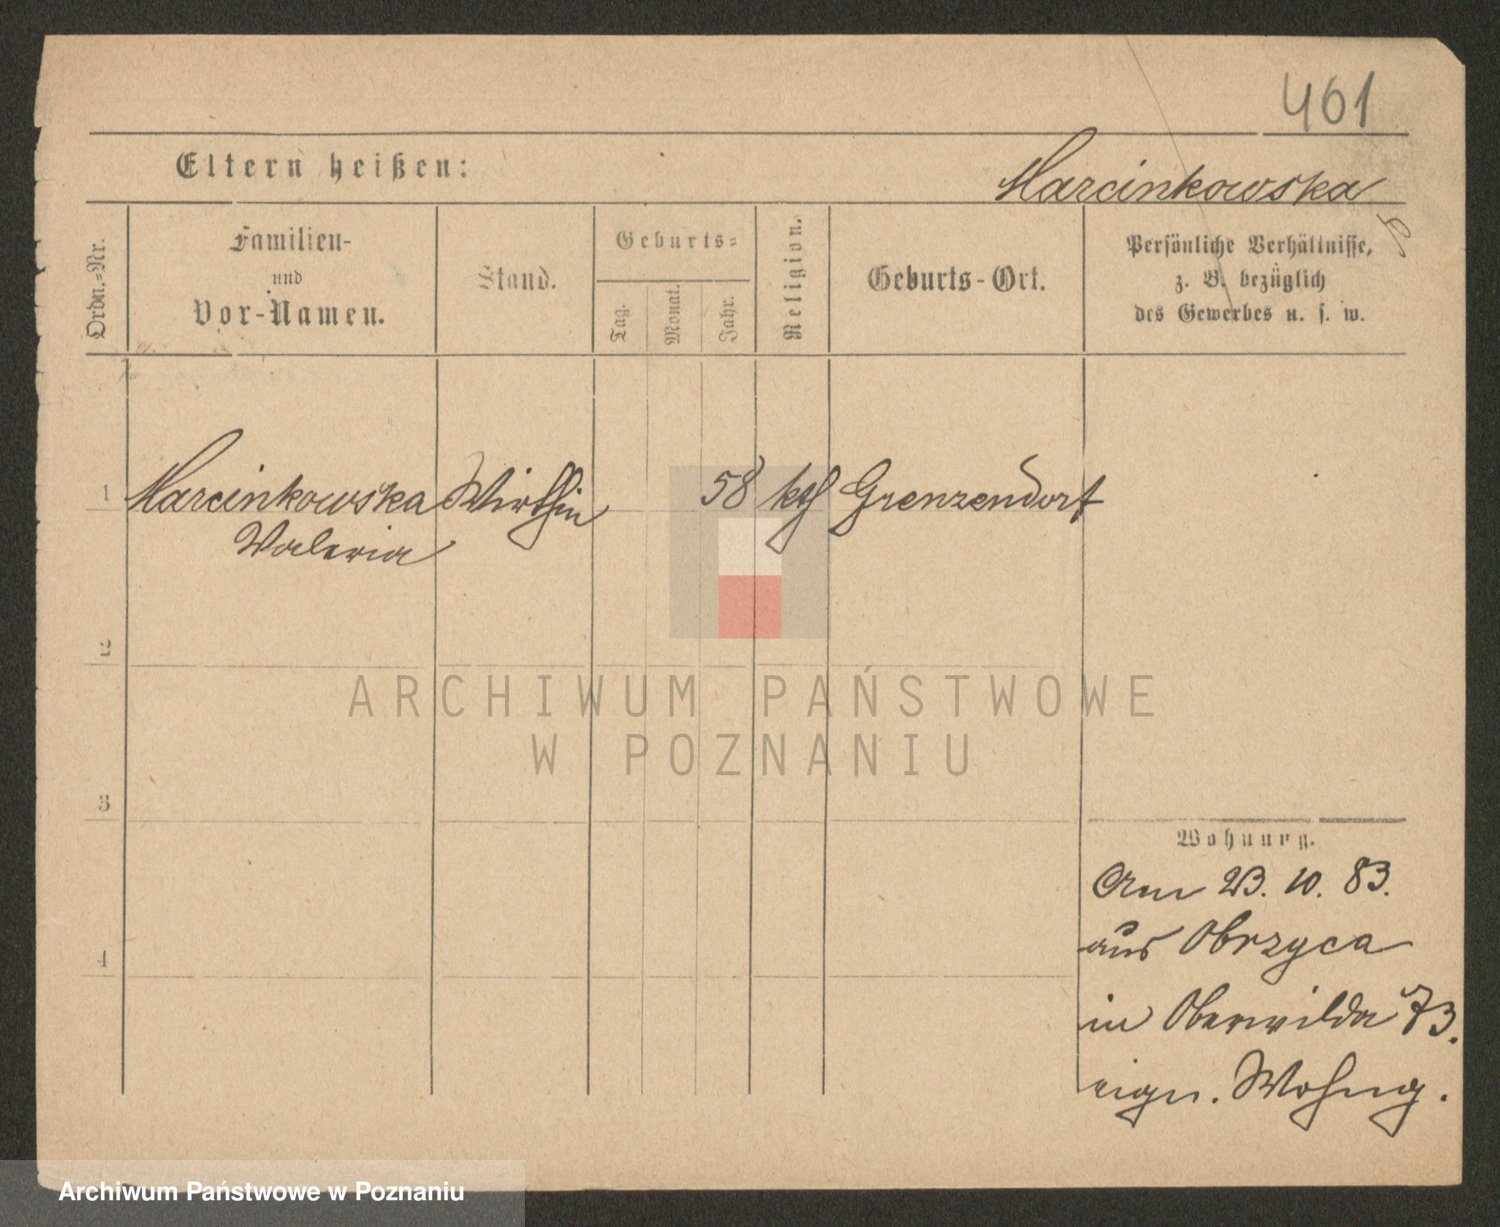 461
Eltern heißen:
Marcinkowska
Ordn.-Nr.
Familien-
und
Vor-Namen.
Stand.
Geburts-
Tag.
Monat.
Jahr.
Religion.
Geburts-Ort.
Persönliche Verhältnisse,
z. B. bezüglich
des Gewerbes u. s. w.
1 Marcinkowska Wirthin 58 kth Grenzendorf
Valeria
2
ARCHIWUM PAŃSTWOWE
W POZNANIU
3
Wohnung.
Am 23. 10. 83.
aus Obrzyca
4
in Oberwilda 73.
eign. Wohng.
Archiwum Państwowe w Poznaniu